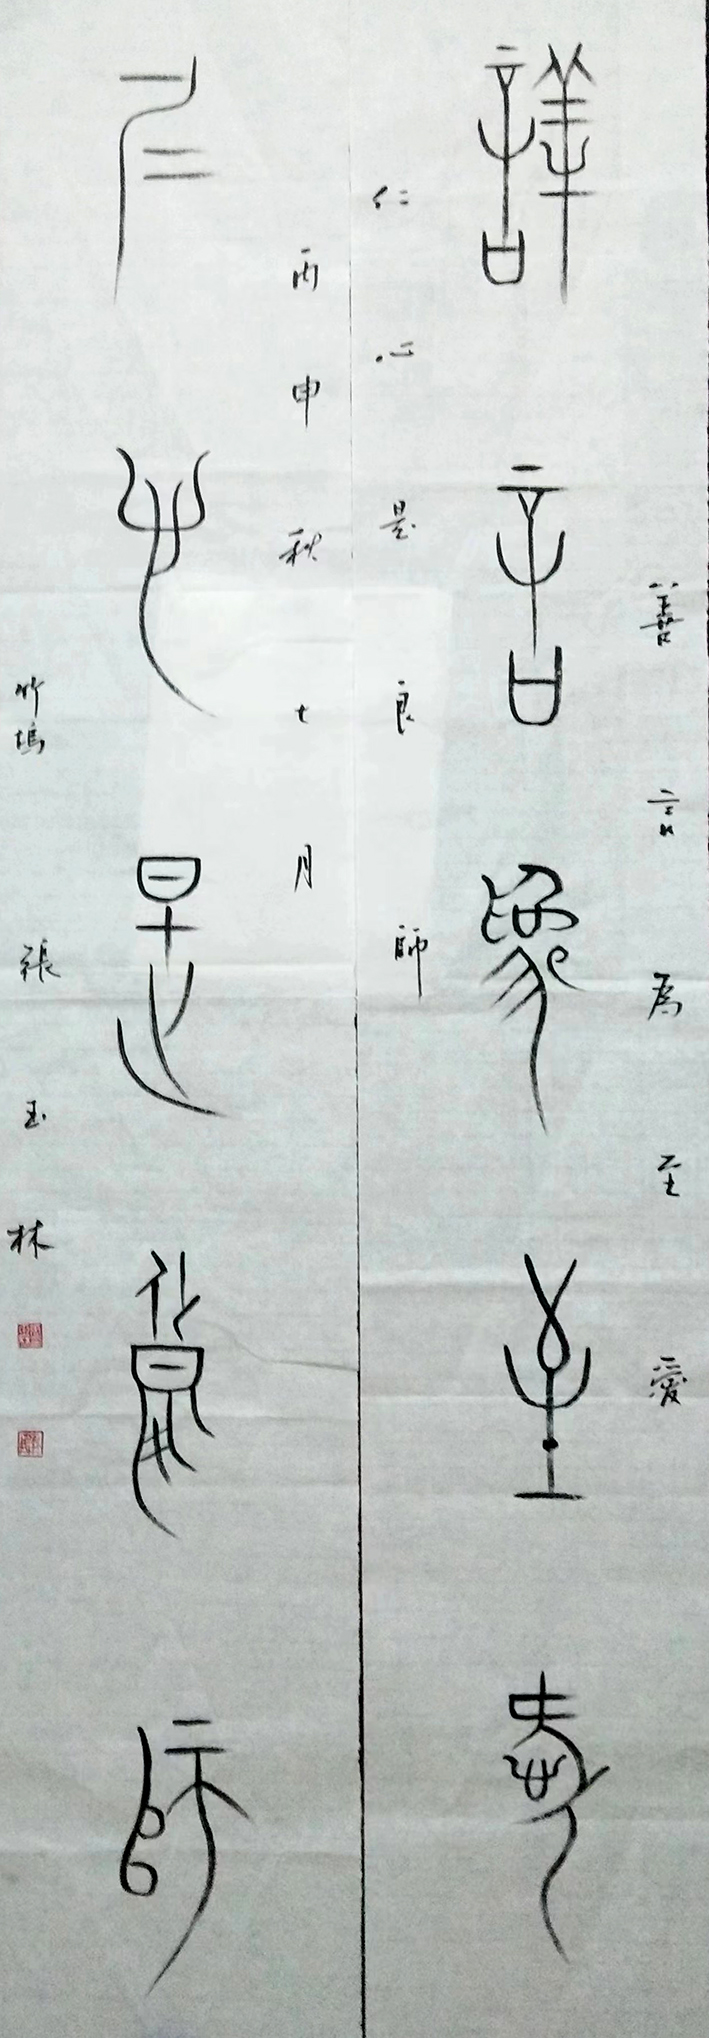 善言為至愛
善言為至愛
仁心是良師
丙申秋七月
仁心是良師
竹塢 張玉林